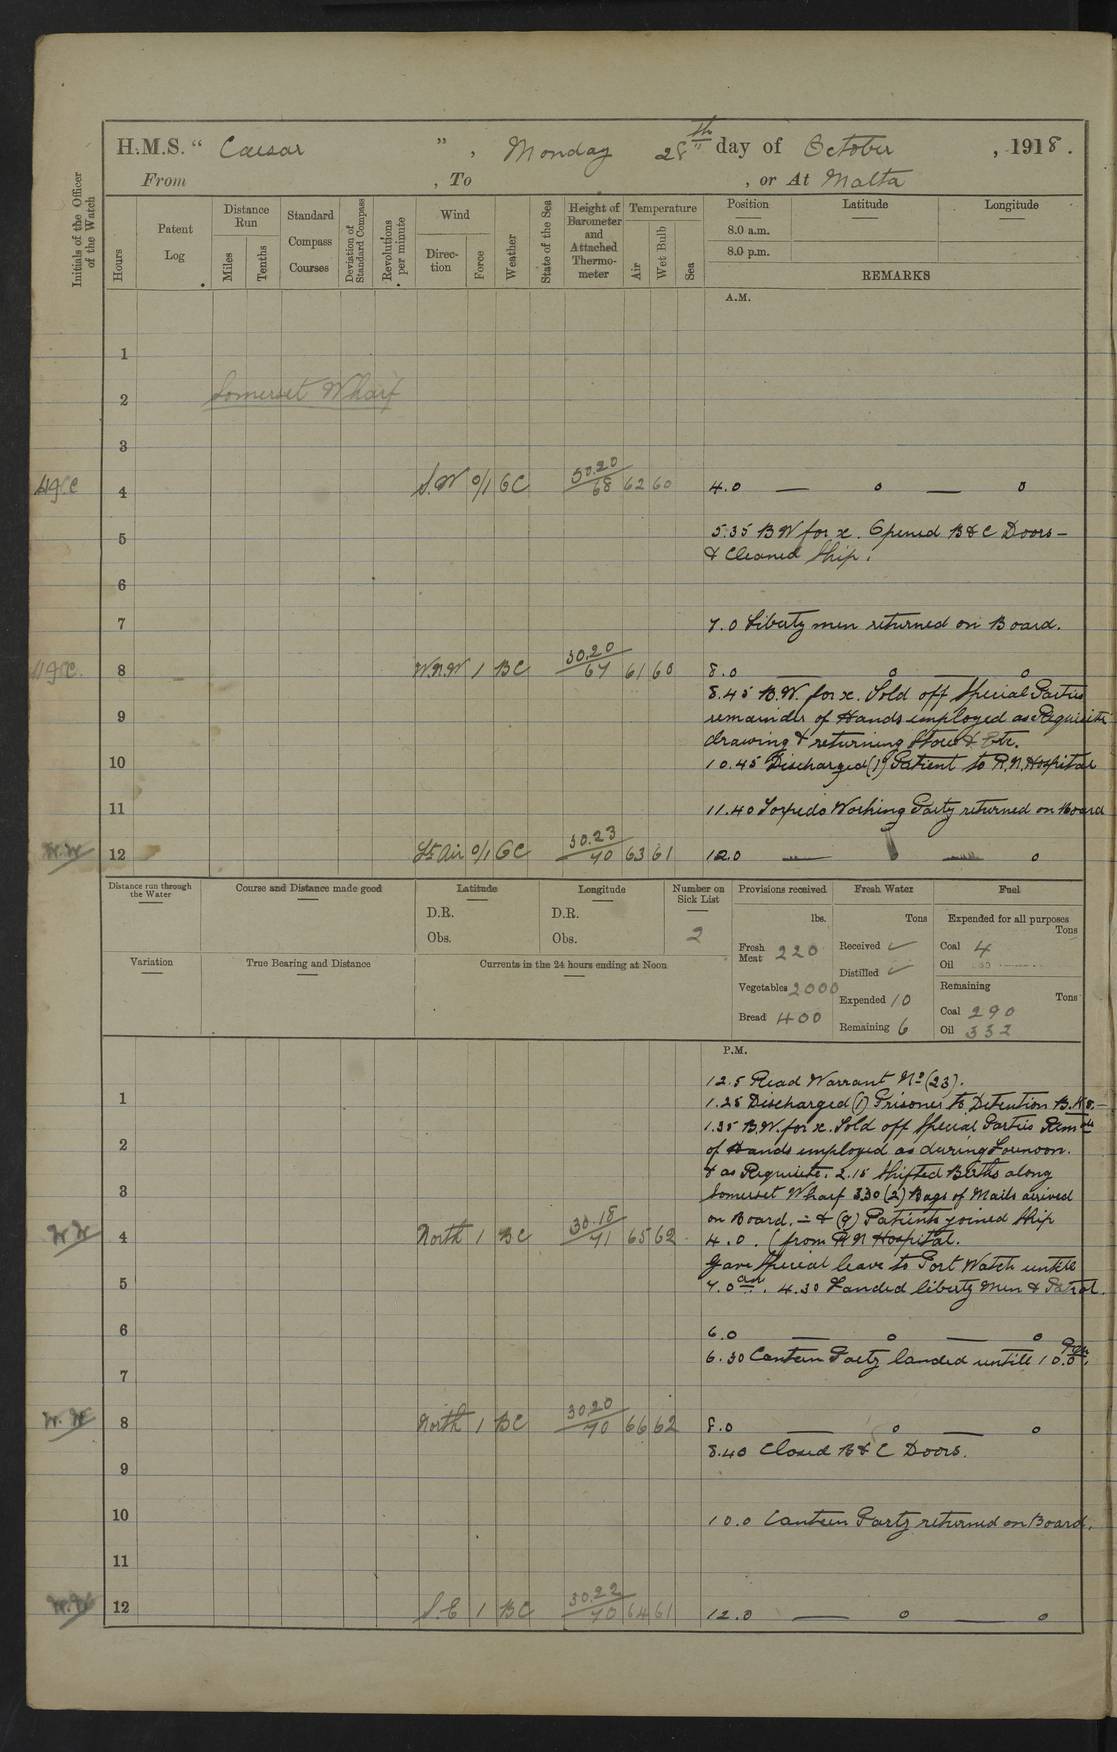 H.M.S. “ Caesar ” , Monday 28th day of October , 1918 .
From , To , or At Malta
Initials of the Officer of the Watch
Hours
Patent Log
Distance Run
Miles
Tenths
Standard Compass Courses
Deviation of Standard Compass
Revolutions per minute
Wind
Direction
Force
Weather
State of the Sea
Height of Barometer and Attached Thermometer
Temperature
Air
Wet Bulb
Sea
Position Latitude Longitude
8.0 a.m.
8.0 p.m.
REMARKS
A.M.
1
2 Somerset Wharf
3
4 S.W 0/1 GC 30.20/68 62 60 4.0 — 0 — 0
5.35 B W for x. Opened B & C Doors –
5
& Cleaned Ship.
6
7 7.0 Liberty men returned on Board.
8 W.N.W 1 BC 30.20/67 61 60 8.0 0 — 0
8.45 B.W. for x. Told off Special Parties
9 remainder of Hands employed as Requisite
drawing & returning Stores & Etc.
10 10.45 Discharged (1) Patient to R.N. Hospital
11 11.40 Torpedo Working Party returned on Board
W.W 12 Lt Air 0/1 GC 30.23/70 63 61 12.0 — 0 — 0
Distance run through the Water
Course and Distance made good
Latitude
D.R.
Obs.
Longitude
D.R.
Obs.
Number on Sick List
2
Variation
True Bearing and Distance
Currents in the 24 hours ending at Noon
Provisions received
lbs.
Fresh Meat 220
Vegetables 2000
Bread 400
Fresh Water
Tons
Received ✓
Distilled ✓
Expended 10
Remaining 6
Fuel
Expended for all purposes
Tons
Coal 4
Oil
Remaining
Tons
Coal 290
Oil 332
P.M.
12.5 Read Warrant No (23).
1 1.25 Discharged (1) Prisoner to Detention B.Ks. –
1.35 B.W. for x. Told off Special Parties Remdr
2 of Hands employed as during Forenoon.
& as Requisite. 2.15 Shifted Berths along
3 Somerset Wharf 3.30 (2) Bags of Mails arrived
on Board. – & (9) Patients joined Ship
W W 4 North 1 BC 30.18/71 65 62 4.0. (from R N Hospital.
Gave Special leave to Port Watch untill
5 7.0 am. 4.30 Landed liberty Men & Patrol.
6 6.0 — 0 — 0
6.30 Canteen Party landed untill 10.0 Pm.
7
W. W 8 North 1 BC 30.20/70 66 62 8.0 — 0 — 0
8.40 Closed B & C Doors.
9
10 10.0 Canteen Party returned on Board.
11
W.W 12 S.E 1 BC 30.22/70 64 61 12.0 — 0 — 0